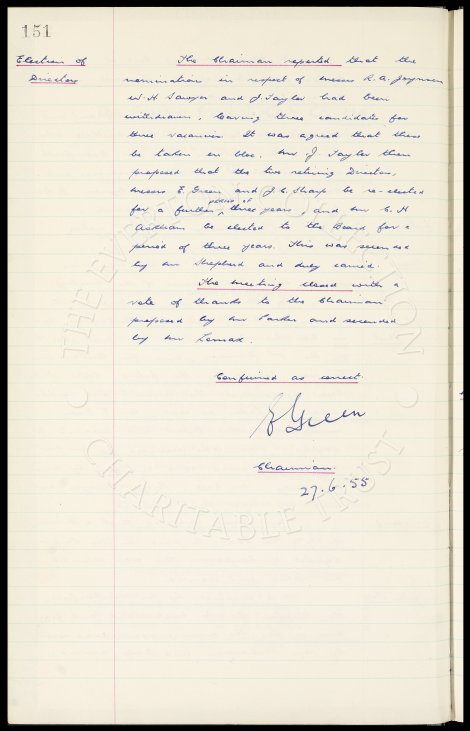 151
Election of
Directors
The Chairman reported that the
nomination in respect of messrs R. A. Jaynson
W. H. Sawyer and J. Taylor had been
withdrawn, leaving three candidates for
three vacancies. It was agreed that these
be taken en bloc. Mr J Taylor then
proposed that the two retiring Directors,
messrs E. Green and J. C. Sharp be re-elected
for a further period of three years, and Mr C. H
Askham be elected to the Board for a
period of three years. This was seconded
by Mr Shepherd and duly carried.
The meeting closed with a
vote of thanks to the Chairman
proposed by Mr Parker and seconded
by Mr Lomas.
Confirmed as correct.
E Green
Chairman.
27.6.55
THE EVERTON COLLECTION
CHARITABLE TRUST